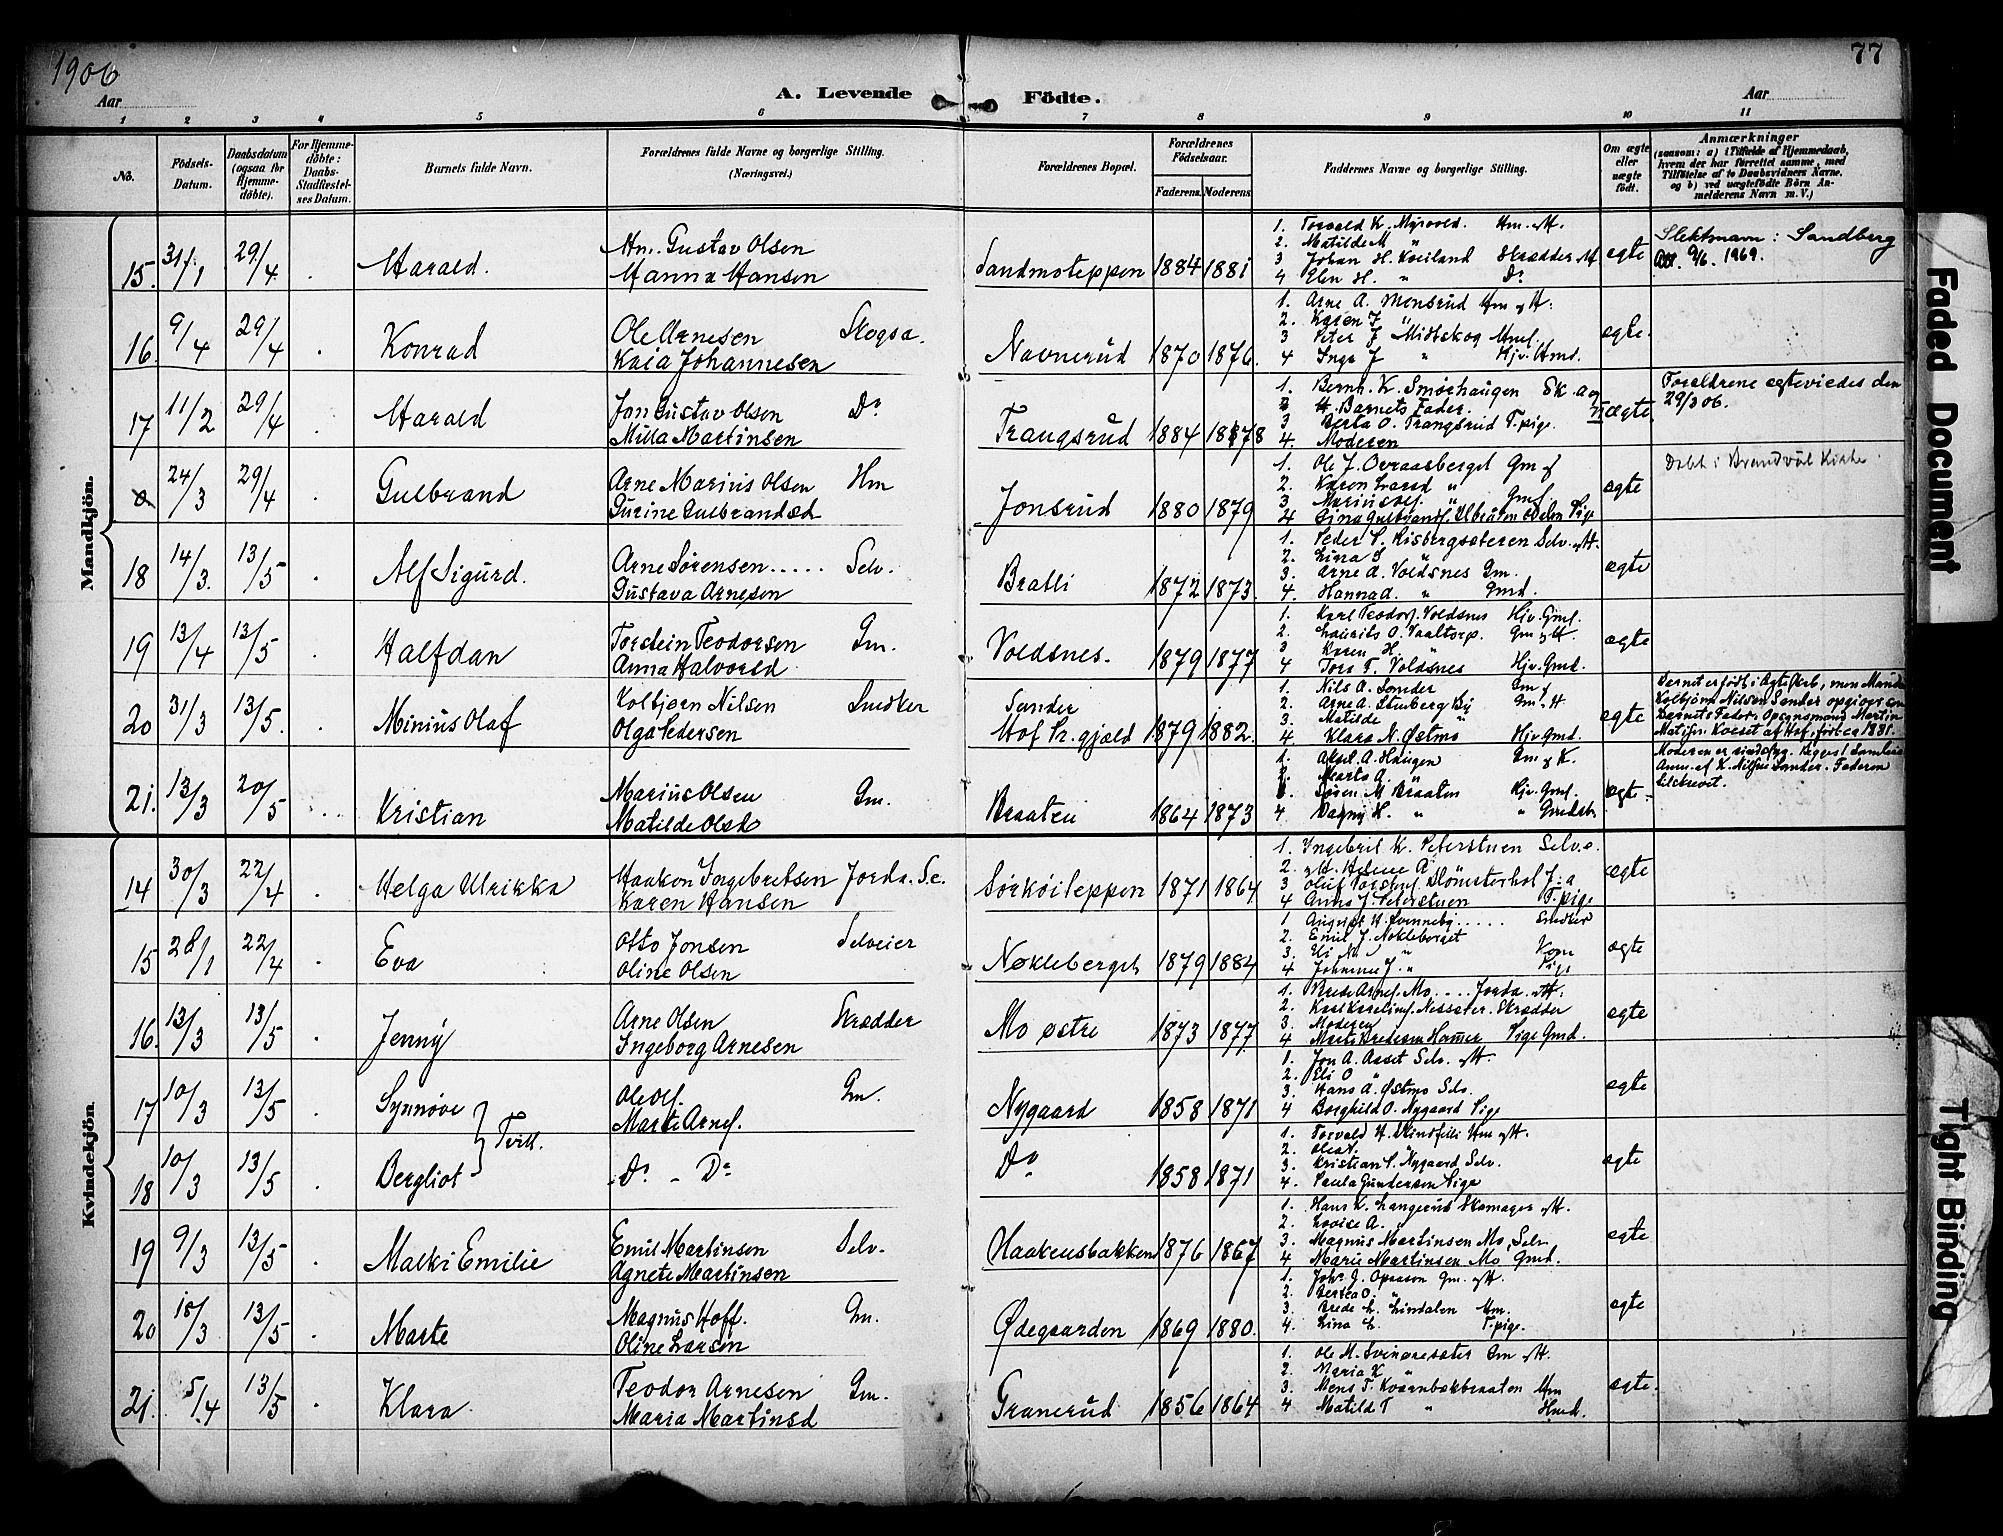 1906
77
Aar
A. Levende Födte.
Aar
1 2 3 4 5 6 7 8 9 10 11
No.
Födsels-Datum.
Daabsdatum (ogsaa for Hjemme-döbte).
For Hjemme-döbte: Daabs-Stadfæstel-ses Datum.
Barnets fulde Navn.
Forældrenes fulde Navne og borgerlige Stilling. (Næringsvei.)
Forældrenes Bopæl.
Forældrenes Födselsaar.
Faderens. Moderens.
Faddernes Navne og borgerlige Stilling.
Om ægte eller uægte födt.
Anmærkninger
(saasom: a) i Tilfælde af Hjemmedaab, hvem der har forrettet samme, med Tilföielse af to Daabsvidners Navne, og b) ved uægtefödte Börn Anmelderens Navn m. V.)
Mandkjön.
15. 31/1 29/4 Harald. Hm. Gustav Olsen
Hanna Hansen
Sandmoteppen 1884 1881
1. Torvald K. Myrvold. Hm. & H.
2. Matilde M "
3 Johan H. Kveiland Skrædder & H
4 Elen H. " Do
ægte
Slektsnavn: Sandberg
9/6. 1969.
16. 9/4 29/4 Konrad Ole Arnesen Skogsa.
Kaia Johannesen
Navnerud 1870 1876.
1. Arne A. Monsrud Hm & H.
2. Karen J "
3 Peter J Midtskog Hmf.
4 Inga J " Hjv. Hmd.
ægte.
17 11/2 29/4 Harald Jon Gustav Olsen Do
Milla Martinsen
Trangsrud 1884 1878
1. Bernh. K. Smørhaugen Sk. a og
H. Barnets Fader.
3 Berta O. Trangsrud T. pige.
4. Moderen
uægte
Foreldrene egteviedes den
29/3 06.
0 24/3 29/4 Gulbrand Arne Marius Olsen Hm
Gurine Gulbrandsd
Jonsrud 1880 1879
1. Ole J. Overaasberget Gm &
2. Karen Larsd "
3 Marius Olf. " Gmf
4
ægte
Døbt i Brandval Kirke.
18 14/3. 13/5 Alf Sigurd. Arne Sørensen..... Selv.
Gustava Arnesen
Bralli 1872 1873.
1. Peder S. Risbergsæteren Selv. & H.
2. Lina S "
3. Arne A. Voldsnes Gm.
4. Hanna A. " Gmd.
ægte
19 13/4 13/5 Halfdan Torstein Teodorsen Gm.
Anna Halvorsd
Voldsnes. 1879 1877
1. Karl Teodorf. Voldsnes Hjv. Gmf.
2. Laurits O. Vaaltorp. Gm & H.
3 Karen H. "
4 Tora T. Voldsnes Hjv. Gmd.
ægte
20 31/3 13/5. Minius Olaf Kolbjørn Nilsen Snedker
Olga Pedersen
Sander
Hof Pr. gjæld 1879 1882.
1. Nils A. Sander Gm &
2. Arne A. Stuberg By Gm & H
3. Matilde "
4. Klara N. Østmo Hjv. Gmd.
ægte
Barnet er født i Ægteskab, men Manden
Kolbjørn Nilsen Sander opgives som
Barnets Fader. Martin
Kveset af Hof, født ca 1881.
21. 13/3 20/5 Kristian Marius Olsen Gm.
Matilde Olsd
Braaten 1864 1873
1. Aksel A. Haugen Gm & K.
2. Marta A. "
3. Søren M Braaten Hjv. Gmf.
4 Dagny H. "
ægte.
Moderen er sindssyg.
Anm. af K. Nilsen Sander. Faderen
tilskrevet.
Kvindekjön.
14 30/3 22/4 Helga Ulrikka Haakon Ingebretsen Jorda. Se.
Karen Hansen
Sørkøiteppen 1871 1864
1. Ingebril K. Peterstuen Selv. e.
2. & H. Helene A "
3 Oluf Torstenf. Blomsterhol J. a
4 Anna J. Peterstuen T. pige
ægte
15 28/1 22/4 Eva Otto Jonsen Selveier
Oline Olsen
Nøkleberget 1879 1884
1. August H. Svenneby..... Snedker
2. Emil J. Nøkleberget
3. Eli N. " Kone
4 Johanne J. " Pige
ægte
16. 13/3 13/5 Jenny Arne Olsen Skrædder
Ingeborg Arnesen
Mo østre 1873 1877.
1. Brede Arnef. Mo.... Jorda. & H.
2. Karl Karelinf. Nessæter. Skrædder
3. Moderen
4 Marte Bredesen Hammer Pige Gmd.
ægte
17 10/3 13/5 Synnøve } Tvill. Ole Olf. Gm.
Marte Arnef.
Nygaard 1858 1871
1. Jon A. Aaset Selv. & H.
2. Eli O "
3. Hans A. Østmo Selv.
4 Borghild O. Nygaard Pige
ægte
18 10/3 13/5 Bergliot Do - Do
Do 1858 1871
1. Torvald H. Mindfelli Hm & H.
2. Olea N. "
3. Kristian P. Nygaard Selv.
4. Paula Gundersen Pige
ægte
19 9/3 13/5 Malki Emilie Emil Martinsen Selv.
Agnete Martinsen
Haakensbakken 1876 1867
1. Hans K. Langerud Skomager & H.
2. Lovise A. "
3. Magnus Martinsen Mo, Selv.
4 Marie Martinsen Mo Gmd.
ægte
20 18/3 13/5 Marte Magnus Hoff. Gm.
Oline Larsen
Ødegaarden 1869 1880.
1. Johs. J. Opaasen Gm. & H.
2. Bertea O. "
3. Brede L. Lindalen Hm.
4. Lina L. T. pige.
ægte
21. 5/4 13/5 Klara Teodor Arnesen Gm.
Maria Martinsd
Granerud 1856 1864
1. Ole M. Svinaresæter Gm & H.
2. Maria K "
3. Mens T. Kvernbækbraaten Hm
4 Matild T " Hmd.
ægte.
Faded Document
Tight Binding